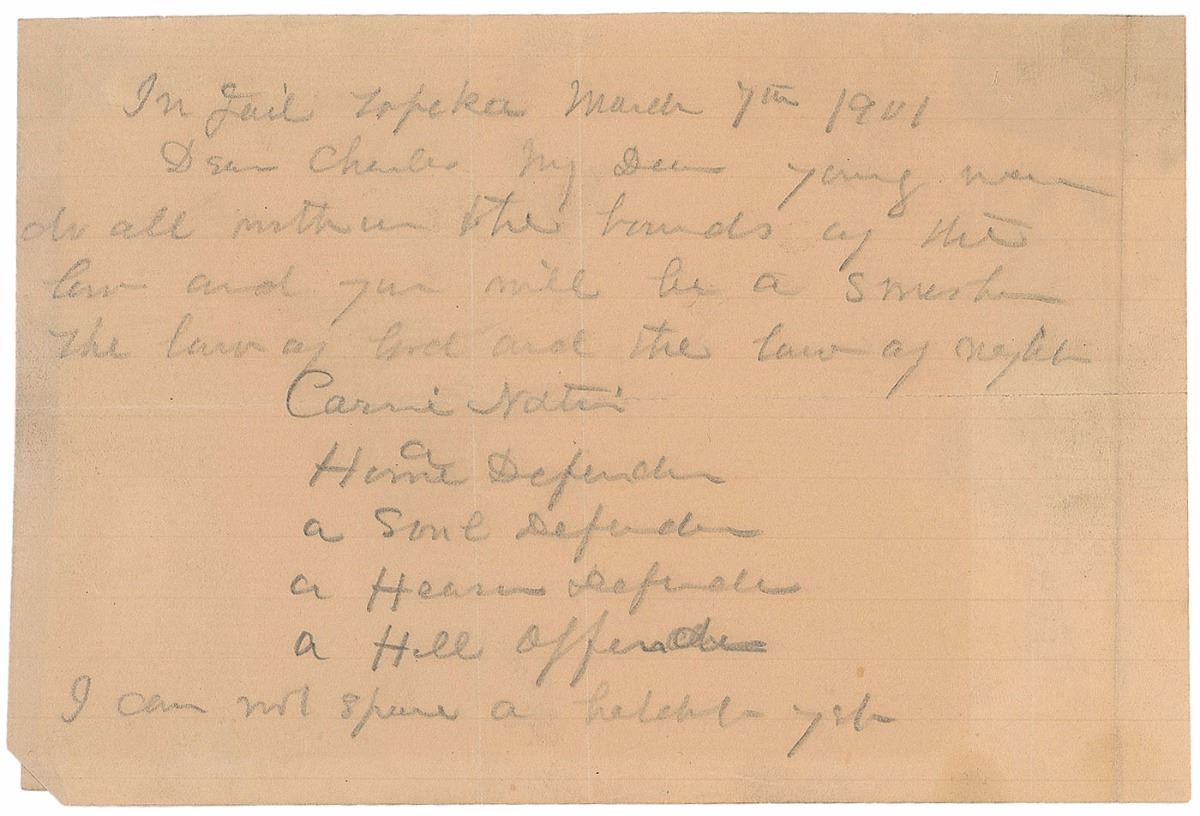 In Jail Topeka March 7th 1901
Dear Charles My Dear young man
do all within the bounds of the
law and you will be a Smasher
The law of God and the law of right
Carrie Nation
a
Home Defender
a Soul Defender
a Heaven Defender
a Hell Offender
I can not spare a hatchet yet